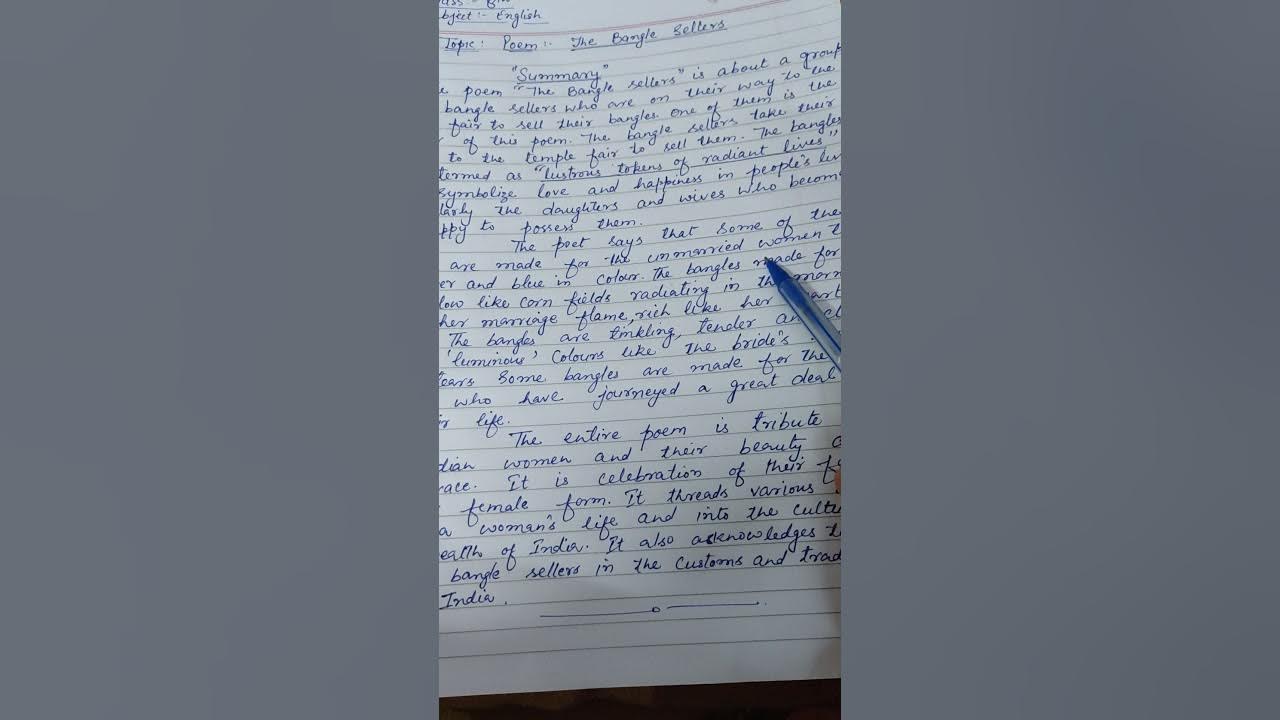 Subject:- English
Topic: Poem:- The Bangle Sellers
"Summary"
poem "The Bangle sellers" is about a group
bangle sellers who are on their way to the
fair to sell their bangles. One of them is the
of this poem. The bangle sellers take their
to the temple fair to sell them. The bangles
termed as "lustrous tokens of radiant lives"
symbolize love and happiness in people's
the daughters and wives who
to possess them.
The poet says that some of the
are made for the unmarried women
and blue in colour. The bangles made for
like corn fields radiating in the
her marriage flame, rich like her
The bangles are tinkling, tender
'luminous' colours like the bride's
tears Some bangles are made for the
who have journeyed a great deal
life.
The entire poem is tribute
women and their beauty
It is celebration of their
female form. It threads various
a woman's life and into the
of India. It also acknowledges
bangle sellers in the customs and
India.